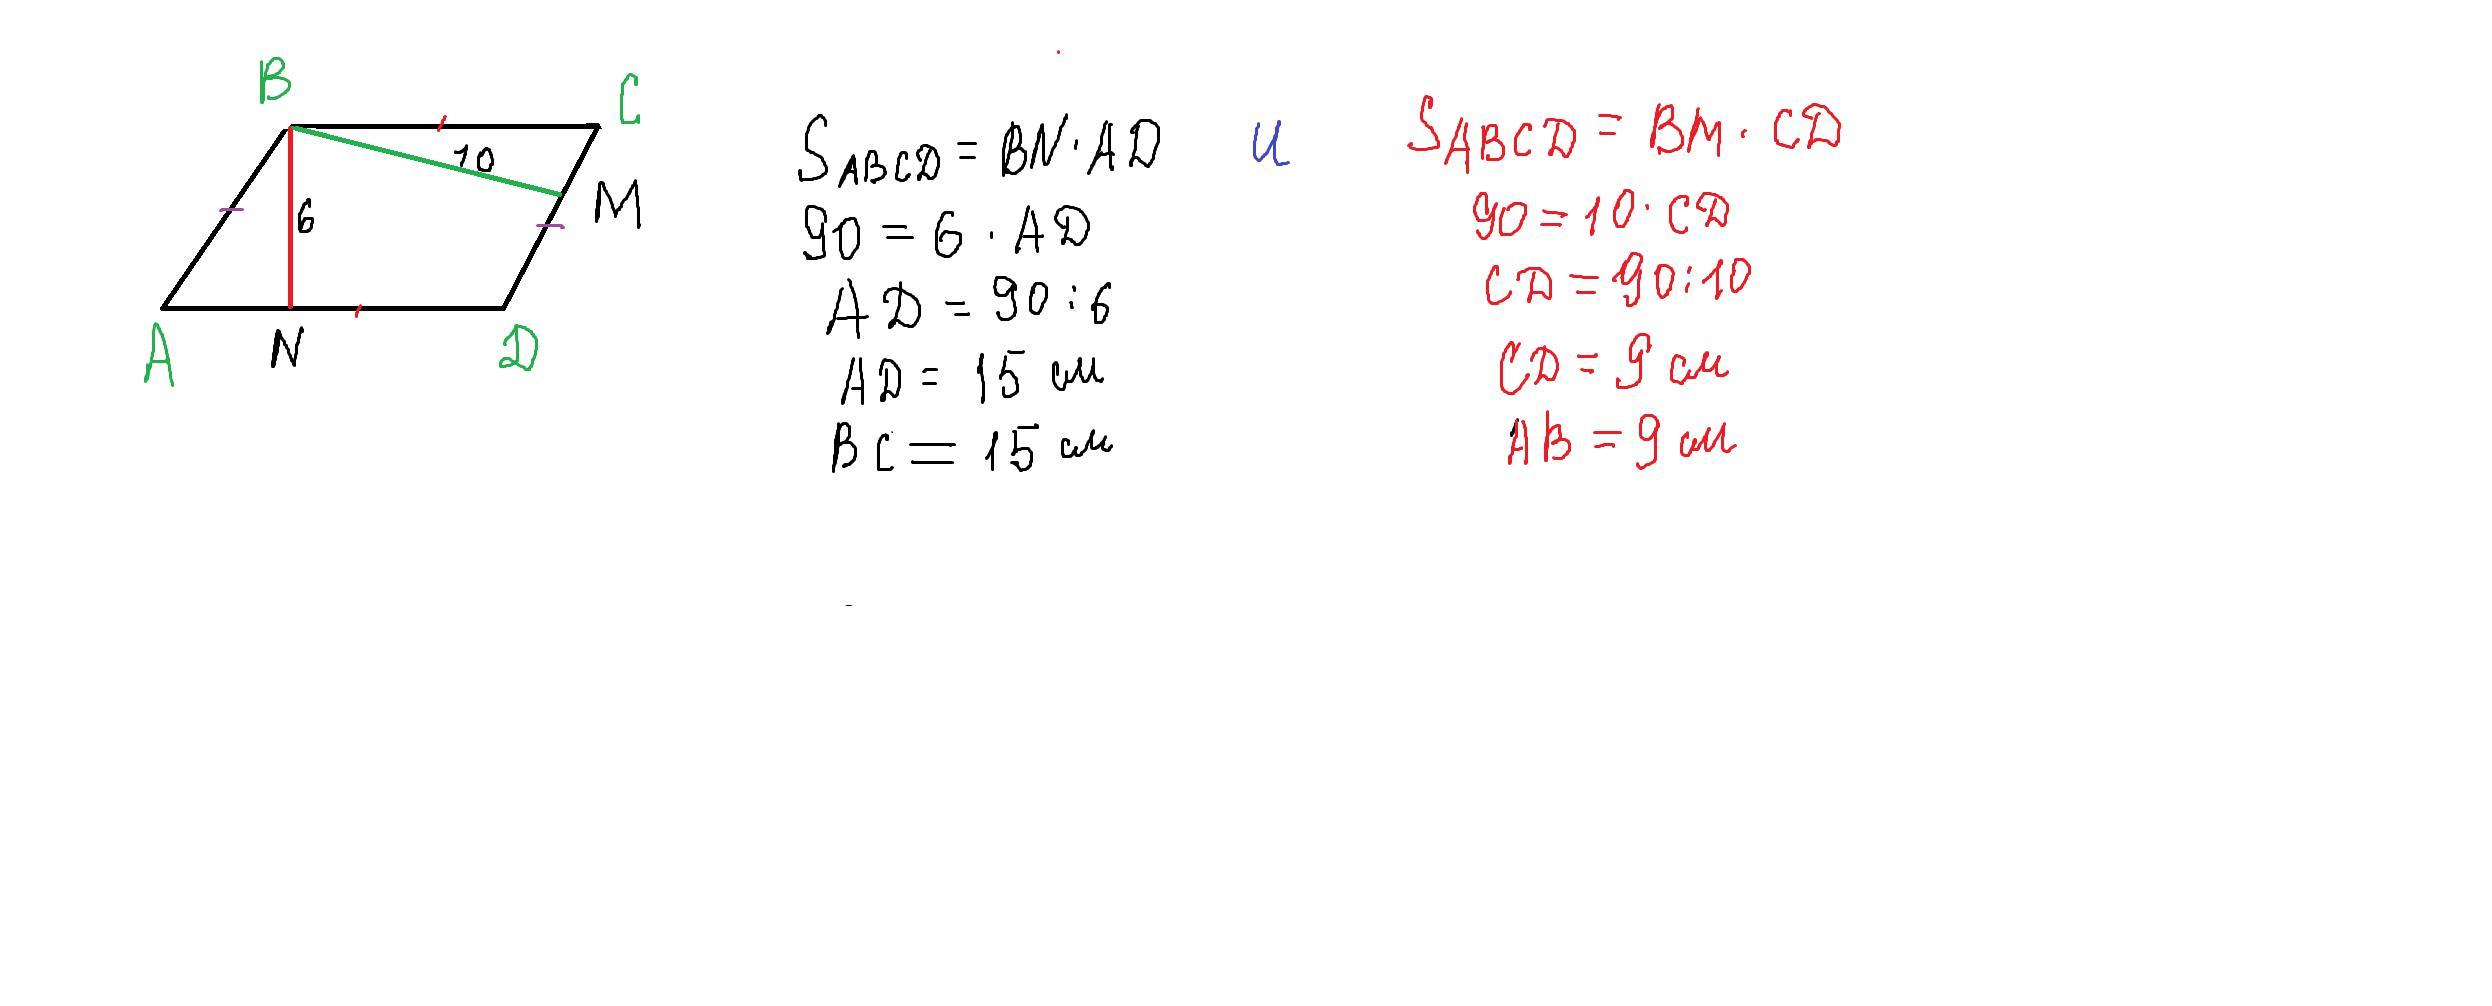 B
C
10
6
M
A
N
D
S ABCD = BN · AD
90 = 6 · AD
AD = 90 : 6
AD = 15 см
BC = 15 см
и
S ABCD = BM · CD
90 = 10 · CD
CD = 90 : 10
CD = 9 см
AB = 9 см